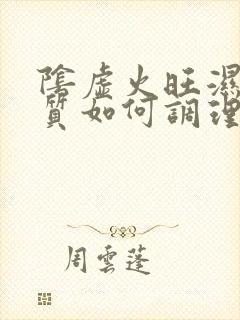 陰虛火旺濕
質如何調理
周雲蓬